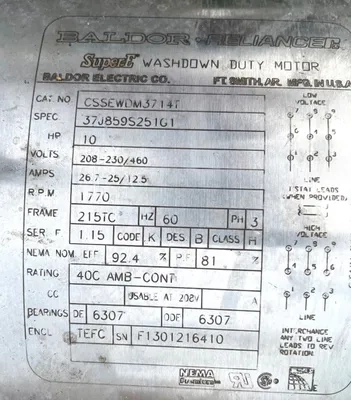 BALDOR · RELIANCER
Super-E WASHDOWN DUTY MOTOR
BALDOR ELECTRIC CO. FT. SMITH, AR. MFG. IN U.S.A.
CAT. NO. CSSEWDM3714T
SPEC. 37J859S251G1
HP 10
VOLTS 208-230/460
AMPS 26.7-25/12.5
R.P.M. 1770
FRAME 215TC HZ 60 PH 3
SER. F. 1.15 CODE K DES B CLASS H
NEMA NOM. EFF. 92.4 % P.F. 81 %
RATING 40C AMB-CONT
CC USABLE AT 208V A
BEARINGS DE 6307 ODE 6307
ENCL TEFC SN F1301216410
LOW
VOLTAGE
7 8 9
4 5 6
1 2 3
LINE
T'STAT LEADS
(WHEN PROVIDED)
HIGH
VOLTAGE
4 5 6
7 8 9
1 2 3
LINE
INTERCHANGE
ANY TWO LINE
LEADS TO REV.
ROTATION.
NEMA
Premium